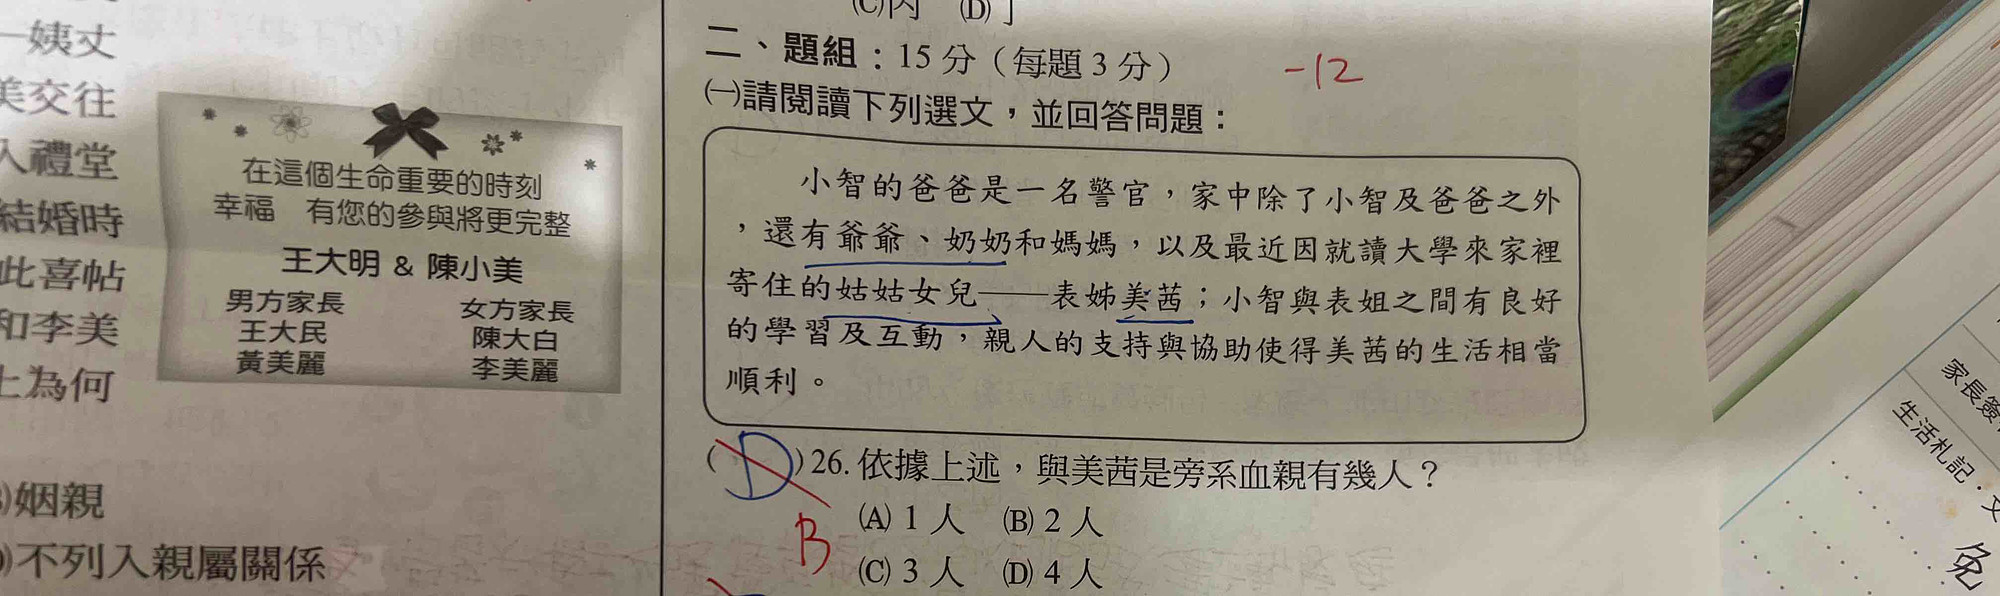 一姨丈
美交往
入禮堂
結婚時
此喜帖
和李美
上為何
姻親
不列入親屬關係
在這個生命重要的時刻
幸福　有您的參與將更完整
王大明 & 陳小美
男方家長　女方家長
王大民　陳大白
黃美麗　李美麗
(C)丙　(D)丁
二、題組：15 分（每題 3 分）
-12
㈠請閱讀下列選文，並回答問題：
小智的爸爸是一名警官，家中除了小智及爸爸之外
，還有爺爺、奶奶和媽媽，以及最近因就讀大學來家裡
寄住的姑姑女兒——表姊美茜；小智與表姐之間有良好
的學習及互動，親人的支持與協助使得美茜的生活相當
順利。
(D)26. 依據上述，與美茜是旁系血親有幾人？
B
(A) 1 人　(B) 2 人
(C) 3 人　(D) 4 人
家長簽
生活札記．文
免